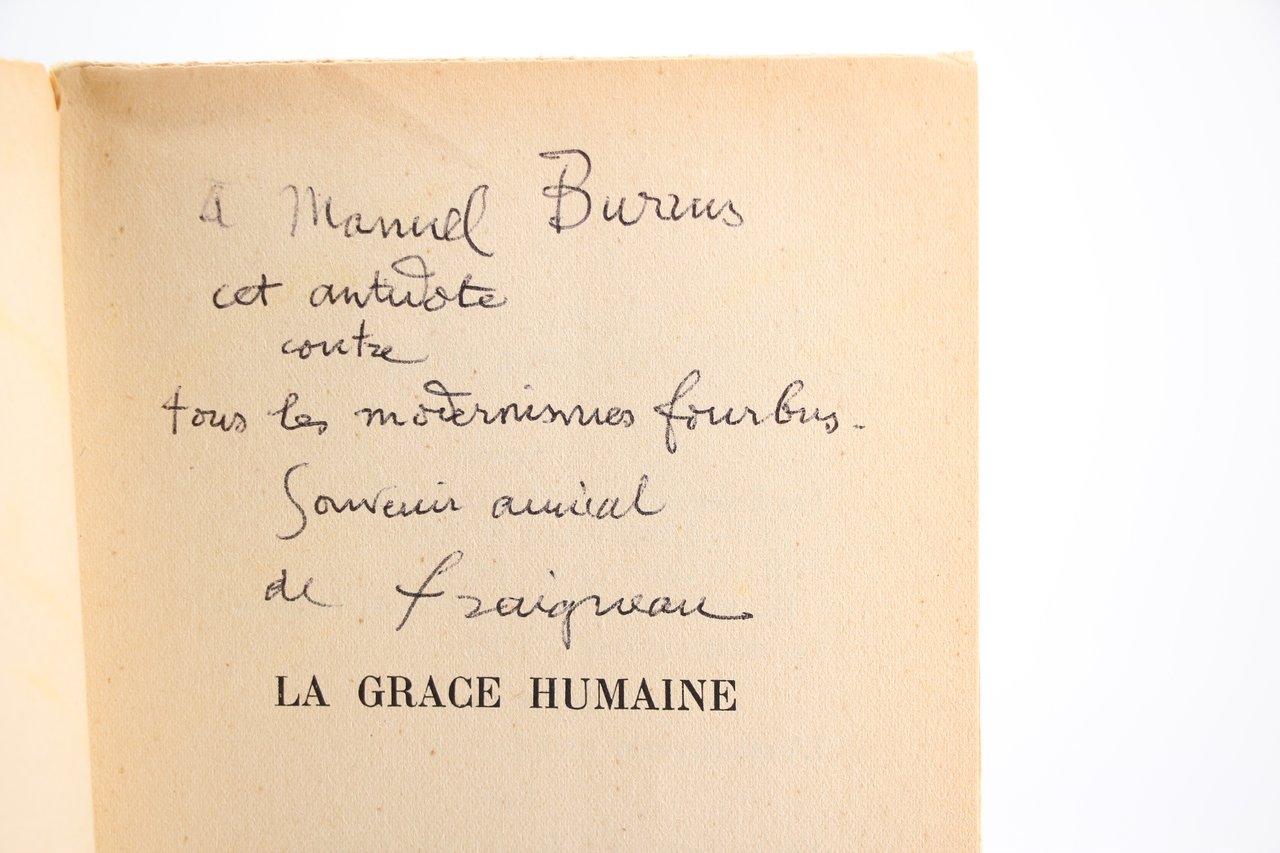 A Manuel Burrus
cet antidote
contre
tous les modernismes fourbus.
Souvenir amical
de fraigneau
LA GRACE HUMAINE